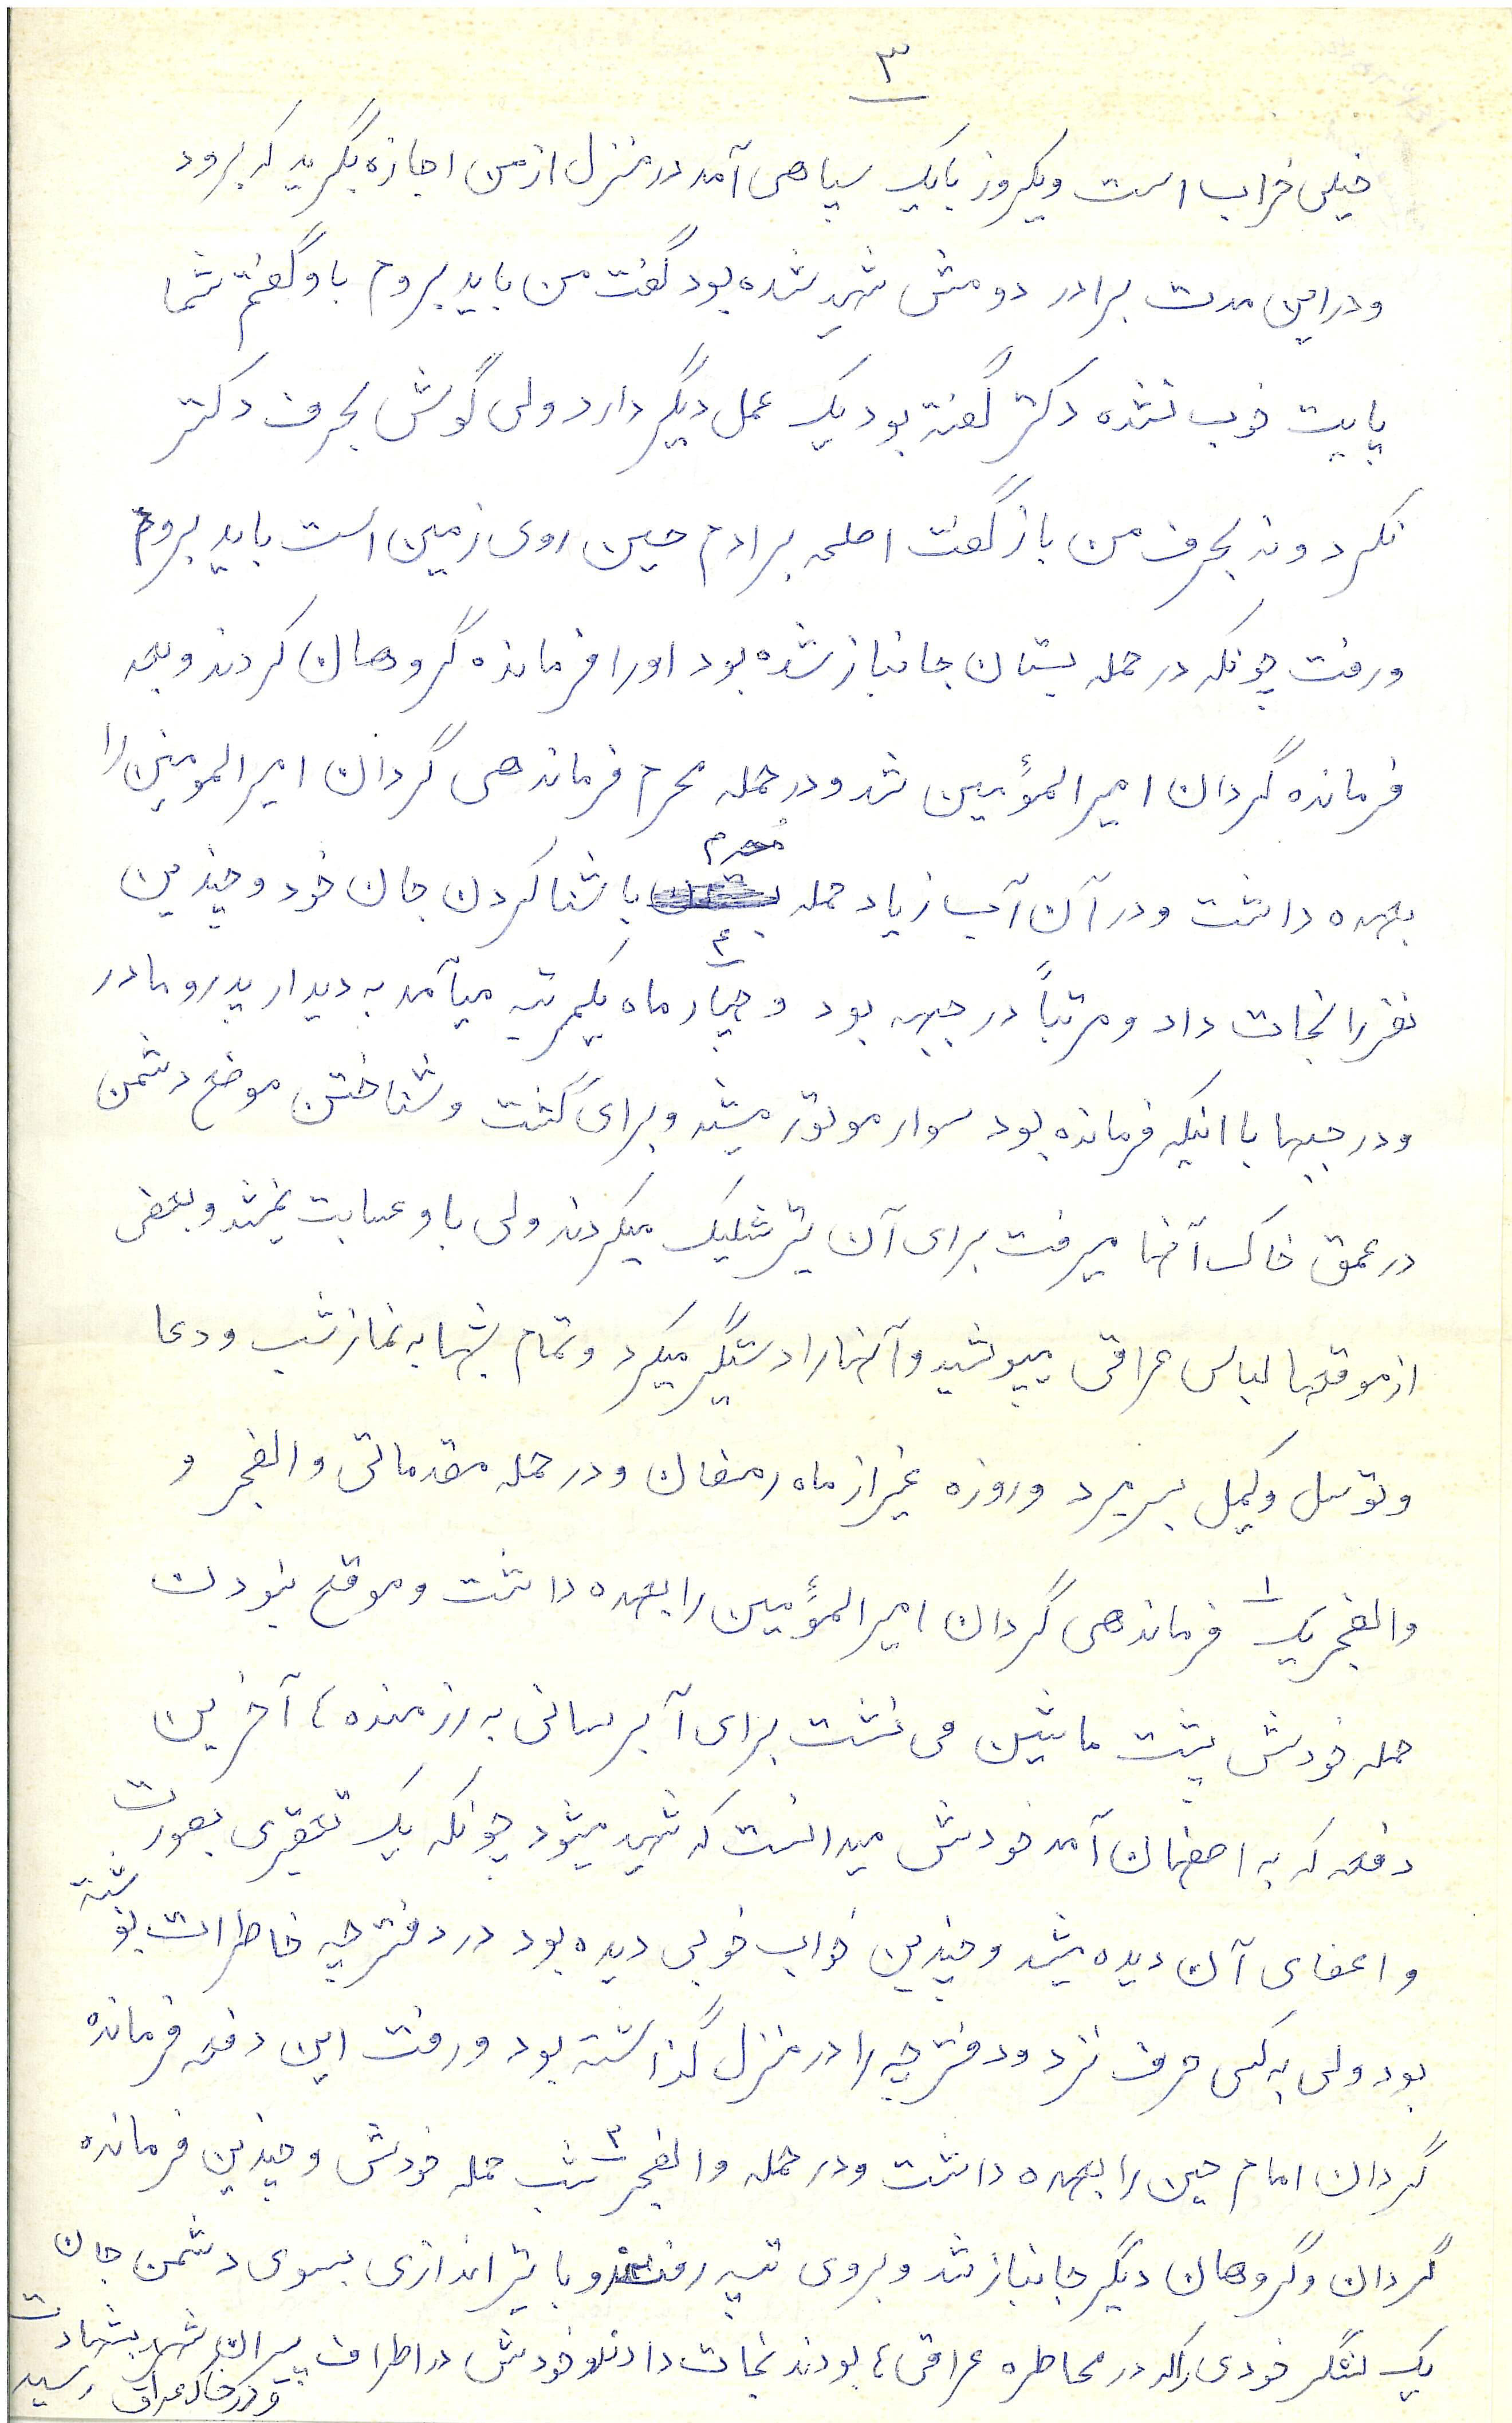 ۳
خیلی خراب است و یکروز با یک سپاهی آمد در منزل از من اجازه بگیرید که برود
و در این مدت برادر دومش شهید شده بود گفت من باید بروم باو گفتم شما
پایت خوب نشده دکتر گفته بود یک عمل دیگر دارد ولی گوش بحرف دکتر
نکرد و نه بحرف من باز گفت اسلحه برادرم حسین روی زمین است باید بروم
و رفت چونکه در حمله بستان جانباز شده بود او را فرمانده گروهان کردند و بعد
فرمانده گردان امیرالمؤمنین شد و در حمله محرم فرماندهی گردان امیرالمومنین را
بعهده داشت و در آن آب زیاد حمله محرم با شنا کردن جان خود و چندین
نفر را نجات داد و مرتباً در جبهه بود و چهار ۴ ماه یکمرتبه میآمد به دیدار پدر و مادر
و در جبهها با اینکه فرمانده بود سوار موتور میشد و برای گشت و شناختن موضع دشمن
در عمق خاک آنها میرفت برای آن تیر شلیک میکردند ولی باو عصابت نمیشد و بعضی
از موقعها لباس عراقی میپوشید و آنها را دستگیر میکرد و تمام شبها به نماز شب و دعا
و توسل و کمیل بسر میبرد و روزه غیر از ماه رمضان و در حمله مقدماتی والفجر و
والفجر یک ۱ فرماندهی گردان امیرالمؤمنین را بعهده داشت و موقع نبودن
حمله خودش پشت ماشین می نشست برای آبرسانی به رزمنده ها آخرین
دفعه که به اصفهان آمد خودش میدانست که شهید میشود چونکه یک تغییری بصورت
و اعضای آن دیده میشد و چندین خواب خوبی دیده بود در دفترچه خاطرات نوشته
بود ولی به کسی حرف نزد و دفترچه را در منزل گذاشته بود و رفت این دفعه فرمانده
گردان امام حسین را بعهده داشت و در حمله والفجر ۳ شب حمله خودش و چندین فرمانده
گردان و گروهان دیگر جانباز شد و بروی تپه رفتند و با تیراندازی بسوی دشمن جان
یک لشگر خودی را که در محاصره عراقی ها بودند نجات دادند و خودش در اطراف شهر بشهادت
و در خاک عراق رسید